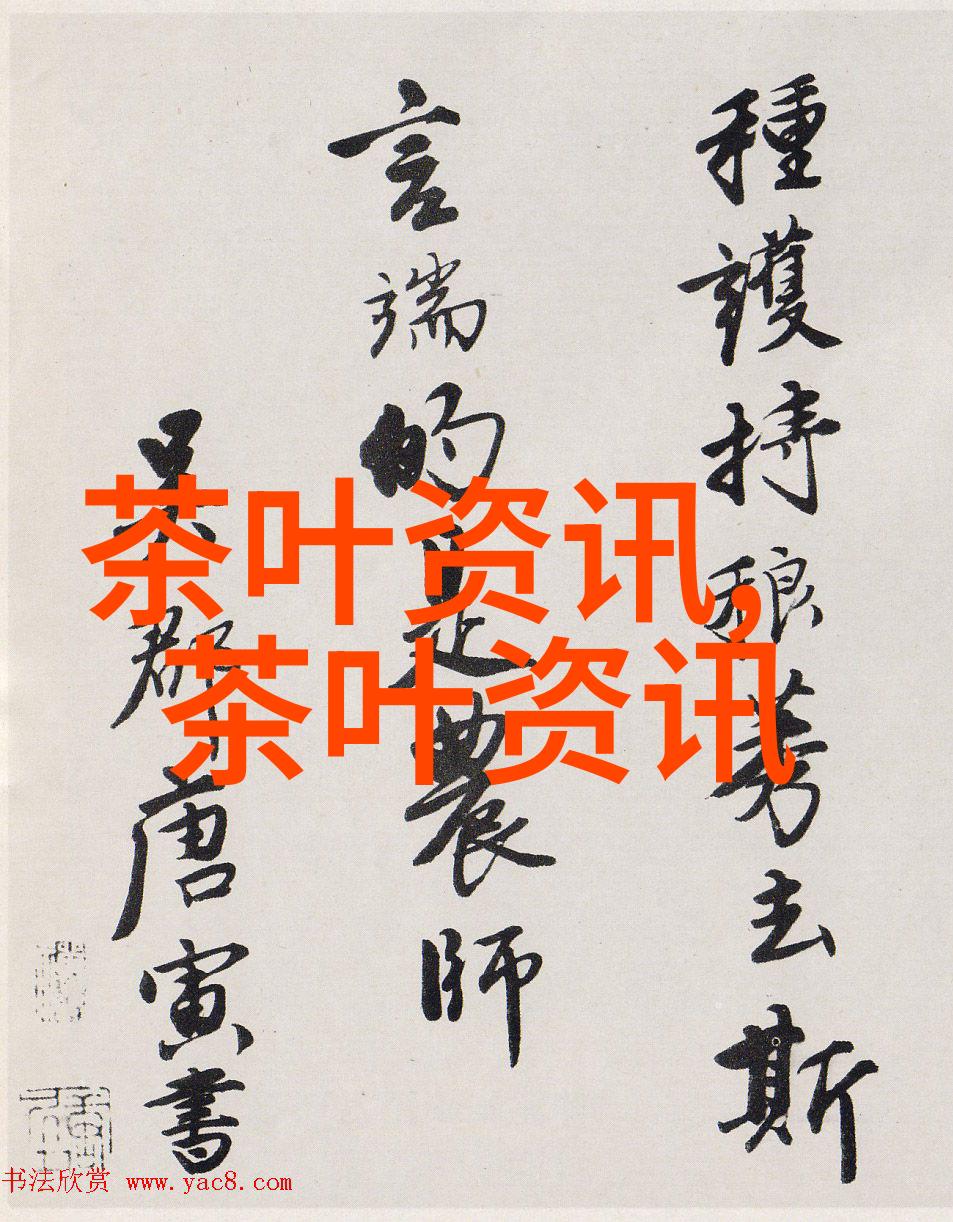 種護持稂莠去斯
言端的是農師
吳郡唐寅書
茶叶资讯,
茶叶资讯
书法欣赏 www.yac8.com